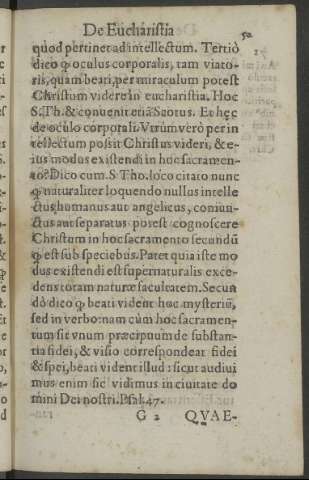 De Eucharistia
50
quod pertinet ad intellectum. Tertiò
dico q̃ oculus corporalis, tam viato-
ris, quam beati, per miraculum potest
Christum videre in eucharistia. Hoc
S. Th. & conuenit etiã Scotus. Et hęc
de oculo corporali. Vtrùm verò per in
tellectum possit Christus videri, & e-
ius modus existendi in hoc sacramen-
to? Dico cum S Tho. loco citato nunc
q̃ naturaliter loquendo nullus intelle
ctus humanus aut angelicus, coniun-
ctus aut separatus potest cognoscere
Christum in hoc sacramento secundũ
q̃ est sub speciebus. Patet quia iste mo
dus existendi est supernaturalis exce-
dens totam naturæ facultatem. Secun
dò dico q̃ beati vident hoc mysteriũ,
sed in verbo: nam cùm hoc sacramen-
tum sit vnum præcipuum de substan-
tia fidei, & visio correspondeat fidei
& spei, beati vident illud: sicut audiui
mus enim sic vidimus in ciuitate do
mini Dei nostri. Psal. 47.
G 2 QVAE-